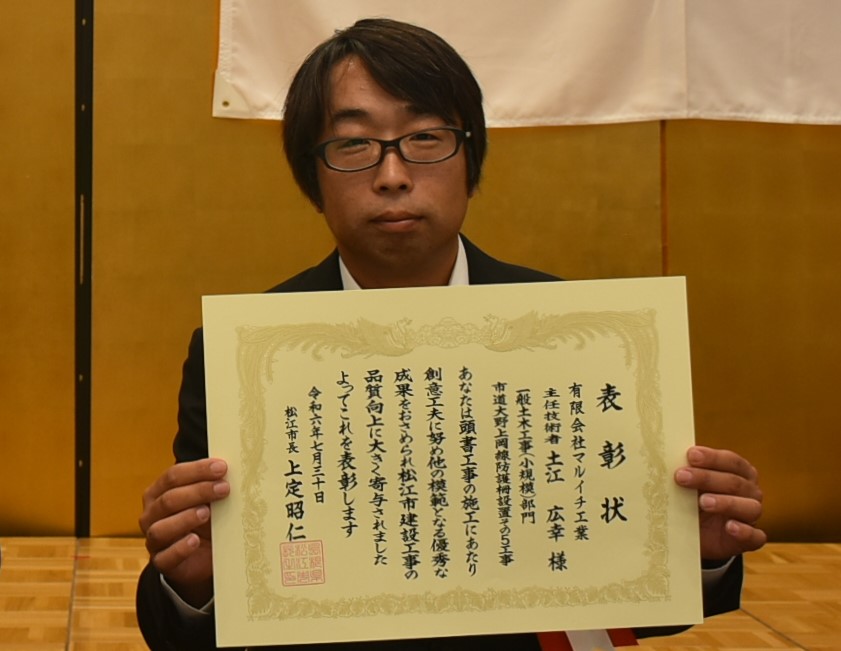 表彰状
有限会社マルイチ工業
主任技術者 土江 広幸 様
一般土木工事(小規模)部門
市道大野上岡線防護柵設置その5工事
あなたは頭書工事の施工にあたり
創意工夫に努め他の模範となる優秀な
成果をおさめられ松江市建設工事の
品質向上に大きく寄与されました
よってこれを表彰します
令和六年七月三十日
松江市長 上定昭仁